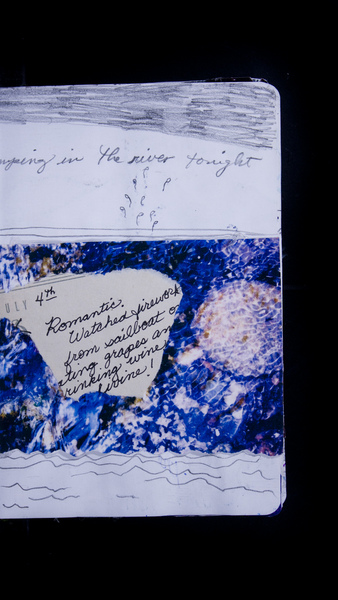 mping in the river tonight
ULY 4th
Romantic.
Watched firework
from sailboat o
ating grapes an
rinking wine
ivine!